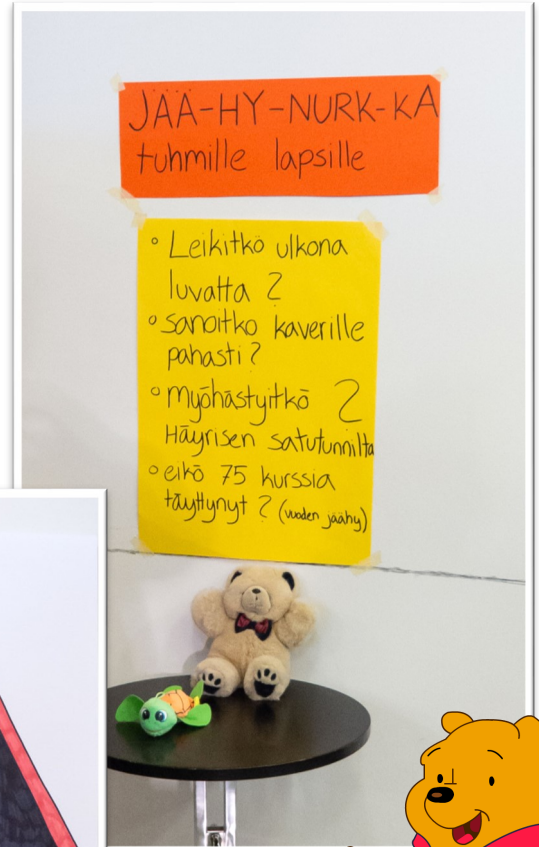 JÄÄ-HY-NURK-KA
tuhmille lapsille
° Leikitkö ulkona
luvatta ?
° sanoitko kaverille
pahasti ?
° myöhästyitkö ?
Häyrisen satutunnilta
° eikö 75 kurssia
täyttynyt ? (vuoden jäähy)